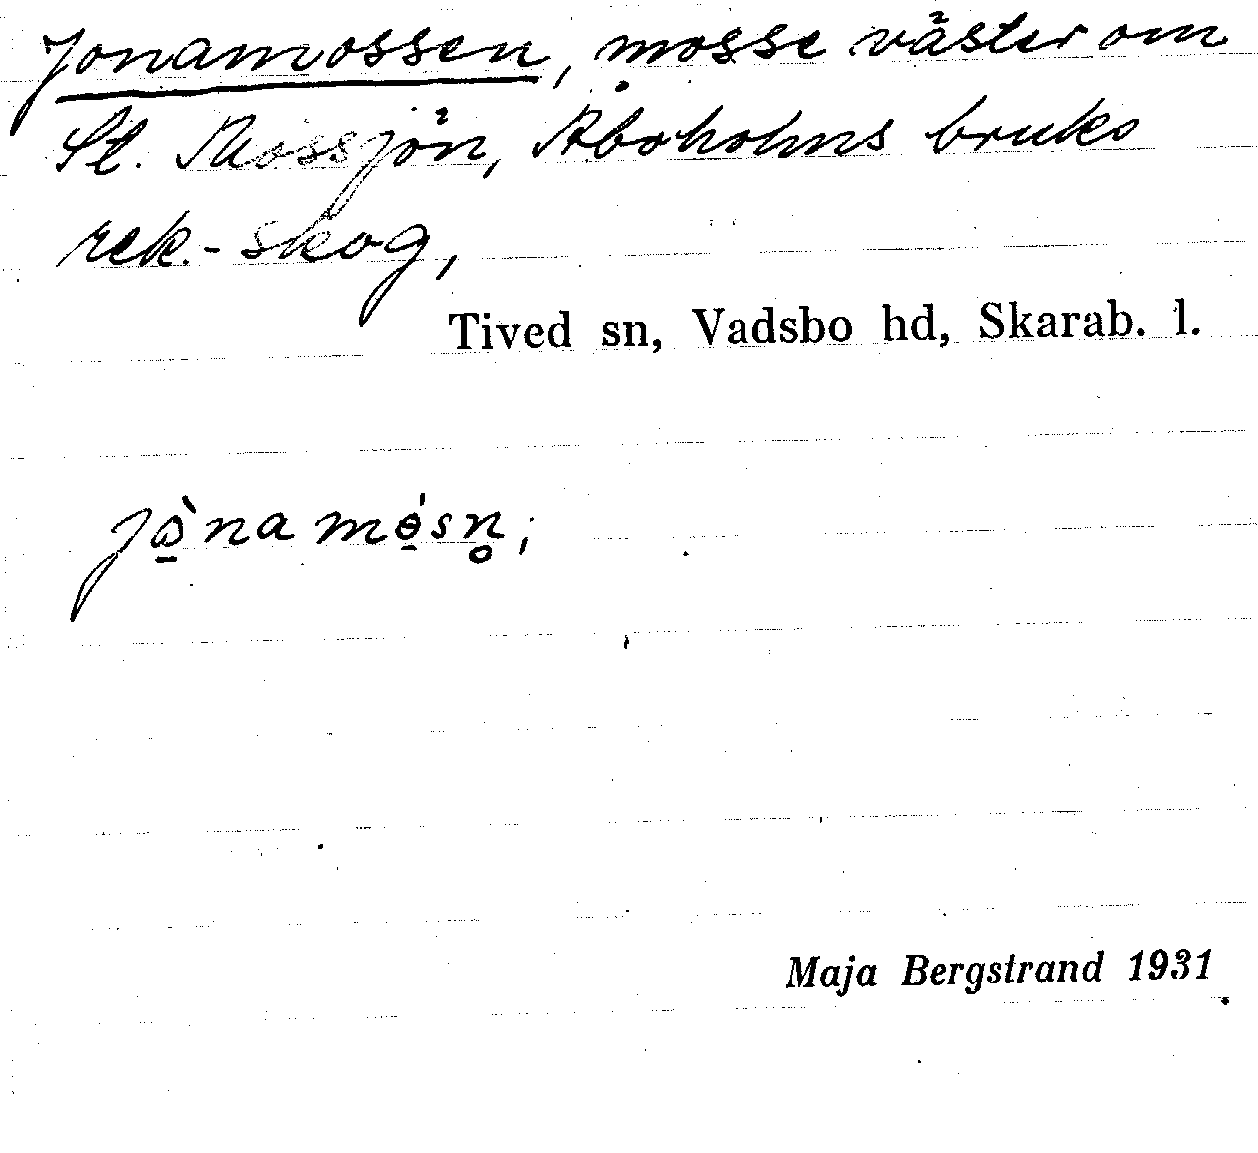 Jonamossen, mosse väster om
St. Mossjön, Aboholms bruks
rek.-skog,
Tived sn, Vadsbo hd, Skarab. l.
jò̠na mó̠sn̥;
Maja Bergstrand 1931